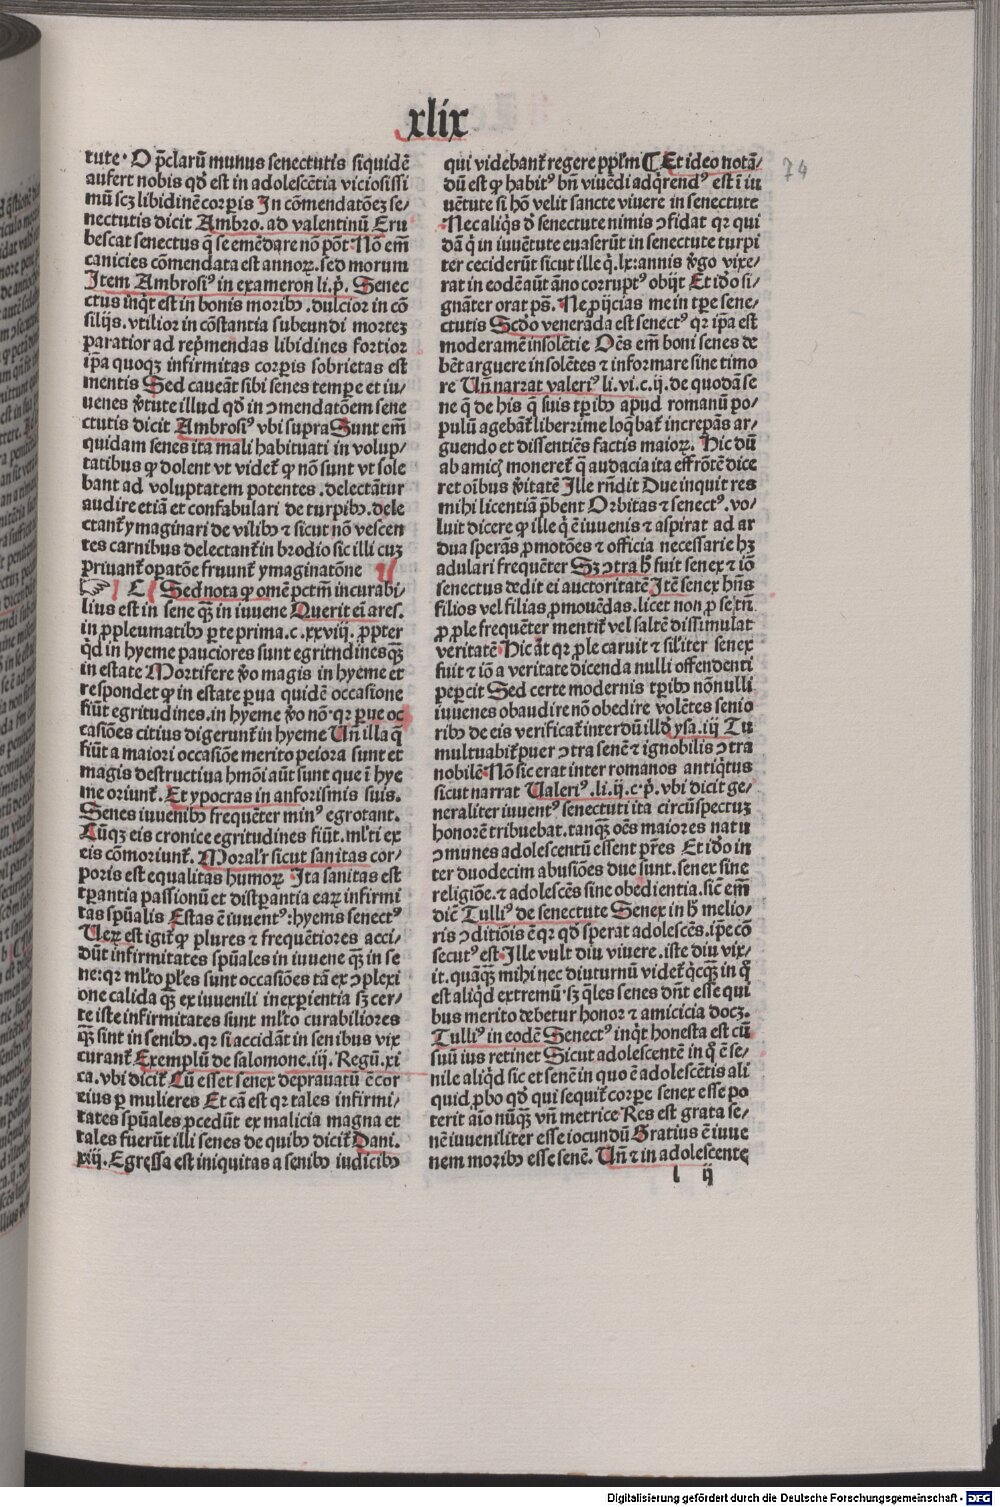 xlix
74
tute· O p̄clarū munus senectutis siquidē
aufert nobis qď est in adolescētia viciosissi
mū scꝫ libidinē corꝑis In cōmendatōeꝫ se⸗
nectutis dicit Ambro. ad valentinū Eru
bescat senectus q̄ se emēdare nō pōt Nō em̄
canicies cōmendata est annoꝝ. sed morum
Item Ambrosiꝰ in exameron li. p̄. Senec
ctus inq̇t est in bonis moribꝫ. dulcior in cō
silijs. vtilior in cōstantia subeundi morteꝫ
ꝑaratior ad rep̄mendas libidines fortior
ip̄a quoqꝫ infirmitas corꝑis sobrietas est
mentis Sed caueāt sibi senes tempe et iu⸗
uenes v̇tute illud qď in ↄmendatōem sene
ctutis dicit Ambrosiꝰ vbi supra Sunt em̄
quidam senes ita mali habituati in volup⸗
tatibus ꝙ dolent vt videt᷑ ꝙ nō sunt vt sole
bant ad voluptatem potentes. delectātur
audire etiā et confabulari de turpibꝫ. dele
ctant᷑ ymaginari de vilibꝫ ⁊ sicut nō vescen
tes carnibus delectant᷑ in brodio sic illi cuꝫ
priuant᷑ oꝑatōe fruunt᷑ ymaginatōne
☞ C Sed nota ꝙ omē pctm̄ incurabi⸗
lius est in sene qꝫ̄ in iuuene Querit ei̇ ares.
in ꝓpleumatibꝫ ꝑte prima. c. xxviij. ꝓpter
q̇d in hyeme pauciores sunt egritndines qꝫ̄
in estate Mortifere v̇o magis in hyeme et
respondet ꝙ in estate ꝑua quidē occasione
fiūt egritudines. in hyeme v̇o nō· qꝛ ꝑue oc
casiōes citius digerunt᷑ in hyeme Vn̄ illa q̄
fiūt a maiori occasiōe merito peiora sunt et
magis destructiua hmōi aūt sunt que ī hye
me oriunt᷑. Et ypocras in anforismis suis.
Senes iuuenibꝫ frequēter minꝰ egrotant.
Cūqꝫ eis cronice egritudines fiūt. ml̇ti ex
eis cōmoriunt᷑. Moral̓r sicut sanitas cor⸗
poris est equalitas humoꝝ Ita sanitas est
tꝑantia passionū et distꝑantia eaꝝ infirmi
tas spūalis Estas ē iuuentꝰ: hyems senectꝰ
Ueꝝ est igit᷑ ꝙ plures ⁊ frequētiores acci⸗
dūt infirmitates spūales in iuuene qꝫ̄ in se
ne: qꝛ ml̇to ples sunt occasiōes tā ex ↄplexi
one calida qꝫ̄ ex iuuenili inexperientia sꝫ cer⸗
te iste infirmitates sunt ml̇to curabiliores
qꝫ̄ sint in senibꝫ. qꝛ si accidāt in senibus vix
curant᷑ Exemplū de salomone. iij. Regū. xi
ca. vbi dicit᷑ Cū esset senex deprauatū ē cor
eius ꝑ mulieres Et cā est qꝛ tales infirmi⸗
tates spūales ꝓcedūt ex malicia magna et
tales fuerūt illi senes de quibꝫ dicit᷑ Dani.
xiij. Egressa est iniquitas a senibꝫ iudicibꝫ
qui videbant᷑ regere ppl̄m C Et ideo notā⸗
dū est ꝙ habitꝰ bn̄ viuēdi adq̇rendꝰ est ī iu
uētute si hō velit sancte viuere in senectute
Nec aliq̇s ď senectute nimis ↄfidat qꝛ qui
dā q̇ in iuuētute euaserūt in senectute turpi
ter ceciderūt sicut ille q̇. lx: annis v̇go vixe⸗
rat in eodē aūt āno corruptꝰ obijt Et iďo si⸗
gnāter orat ps̄. Ne ꝓijcias me in tꝑe sene⸗
ctutis Scďo venerāda est senectꝰ qꝛ ip̄a est
moderamē insolētie Oēs em̄ boni senes de
bēt arguere insolētes ⁊ informare sine timo
re Vn̄ narrat valeriꝰ li. vi. c. ij. de quodā se
ne q̄ de his q̄ suis tꝑibꝫ apud romanū po⸗
pulū agebāt᷑ liberrime loq̄bat᷑ increpās ar⸗
guendo et dissentiēs factis maioꝝ. Hic dū
ab amicꝭ moneret᷑ q̄ audacia ita effrōtē dice
ret oībus v̇itatē Ille rn̄dit Due inquit res
mihi licentiā p̄bent Orbitas ⁊ senectꝰ. vo⸗
luit dicere ꝙ ille q̇ ē iuuenis ⁊ aspirat ad ar
dua sperās ꝓmotōes ⁊ officia necessarie hꝫ
adulari frequēter Sꝫ ↄtra ħ fuit senex ⁊ iō
senectus dedit ei auctoritatē Itē senex hn̄s
filios vel filias ꝓmouēdas. licet non ꝓ se tn̄
ꝓ ꝓle frequēter mentit᷑ vel saltē dissimulat
veritatē Hic āt qꝛ ꝓle caruit ⁊ sil̓iter senex
fuit ⁊ iō a veritate dicenda nulli offendenti
peꝑcit Sed certe modernis tꝑibꝫ nō nulli
iuuenes obaudire nō obedire volētes senio
ribꝫ de eis verificat᷑ interdū illď ysa. iij Tu
multuabit᷑ puer ↄtra senē ⁊ ignobilis ↄtra
nobilē Nō sic erat inter romanos antiq̇tus
sicut narrat Valeriꝰ. li. ij. c. p̄. vbi dicit ge⸗
neraliter iuuentꝰ senectuti ita circūspectuꝫ
honorē tribuebat. tanqꝫ̄ oēs maiores natu
ↄmunes adolescentū essent pr̄es Et iďo in
ter duodecim abusiōes due sunt. senex sine
religiōe. ⁊ adolescēs sine obedientia. sic̄ em̄
dic̄ Tulliꝰ de senectute Senex in ħ melio⸗
ris ↄditiōis ē qꝛ qď sperat adolescēs. ip̄e cō
secutꝰ est Ille vult diu viuere. iste diu vix⸗
it. quāqꝫ̄ mihi nec diuturnū videt᷑ q̇cqꝫ̄ in q̊
est aliq̇d extremū· sꝫ q̇les senes dn̄t esse qui
bus merito debetur honor ⁊ amicicia doc̄ꝫ.
Tulliꝰ in eodē Senectꝰ inq̇t honesta est cū
suū ius retinet Sicut adolescentē in q̊ ē se⸗
nile aliq̇d sic et senē in quo ē adolescētis ali
quid ꝓbo qď qui sequit᷑ corꝑe senex esse po
terit aīo nūqꝫ̄ vn̄ metrice Res est grata se⸗
nē iuueniliter esse iocundū Gratius ē iuue
nem moribꝫ esse senē. Vn̄ ⁊ in adolescente
l ij
Digitalisierung gefördert durch die Deutsche Forschungsgemeinschaft - DFG